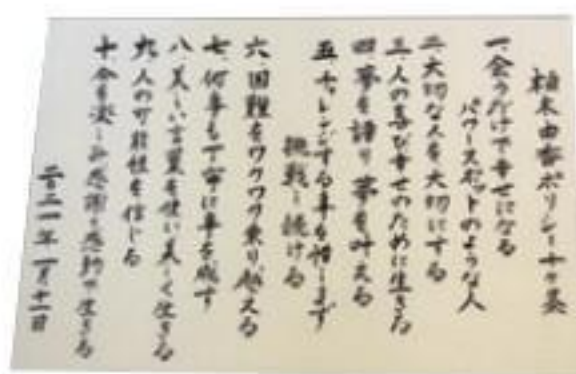 柏木由香ポリシー十ヶ条
一、会うだけで幸せになる
パワースポットのような人
二、大切な人を大切にする
三、人の喜び幸せのために生きる
四、夢を語り夢を叶える
五、チャレンジする事を惜しまず
挑戦し続ける
六、困難をワクワク乗り越える
七、何事も丁寧に事を成す
八、美しい言葉を使い美しく生きる
九、人の可能性を信じる
十、今を楽しみ感謝と感動で生きる
二〇二一年一月十一日